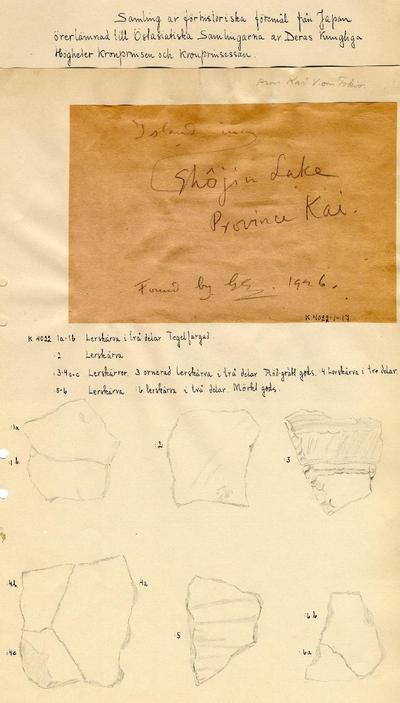 Samling av förhistoriska föremål från Japan
överlämnad till Östasiatiska Samlingarna av Deras Kungliga
Högheter Kronprinsen och Kronprinsessan.
Prov. Kai V. om Tokio.
Island in
Shôjin Lake
Province Kai.
Found by 1926.
K.4022:1-17
K 4022 1a-1b Lerskärva i två delar Tegelfärgad.
:2 Lerskärva
:3-4a-c Lerskärvor. 3 ornerad lerskärva i två delar Röd-grått gods. 4 Lerskärva i tre delar.
:5-6 Lerskärva :6 lerskärva i två delar Mörkt gods.
:1a
:1b
:2
:3
:4b
:4a
:4c
:5
:6b
:6a